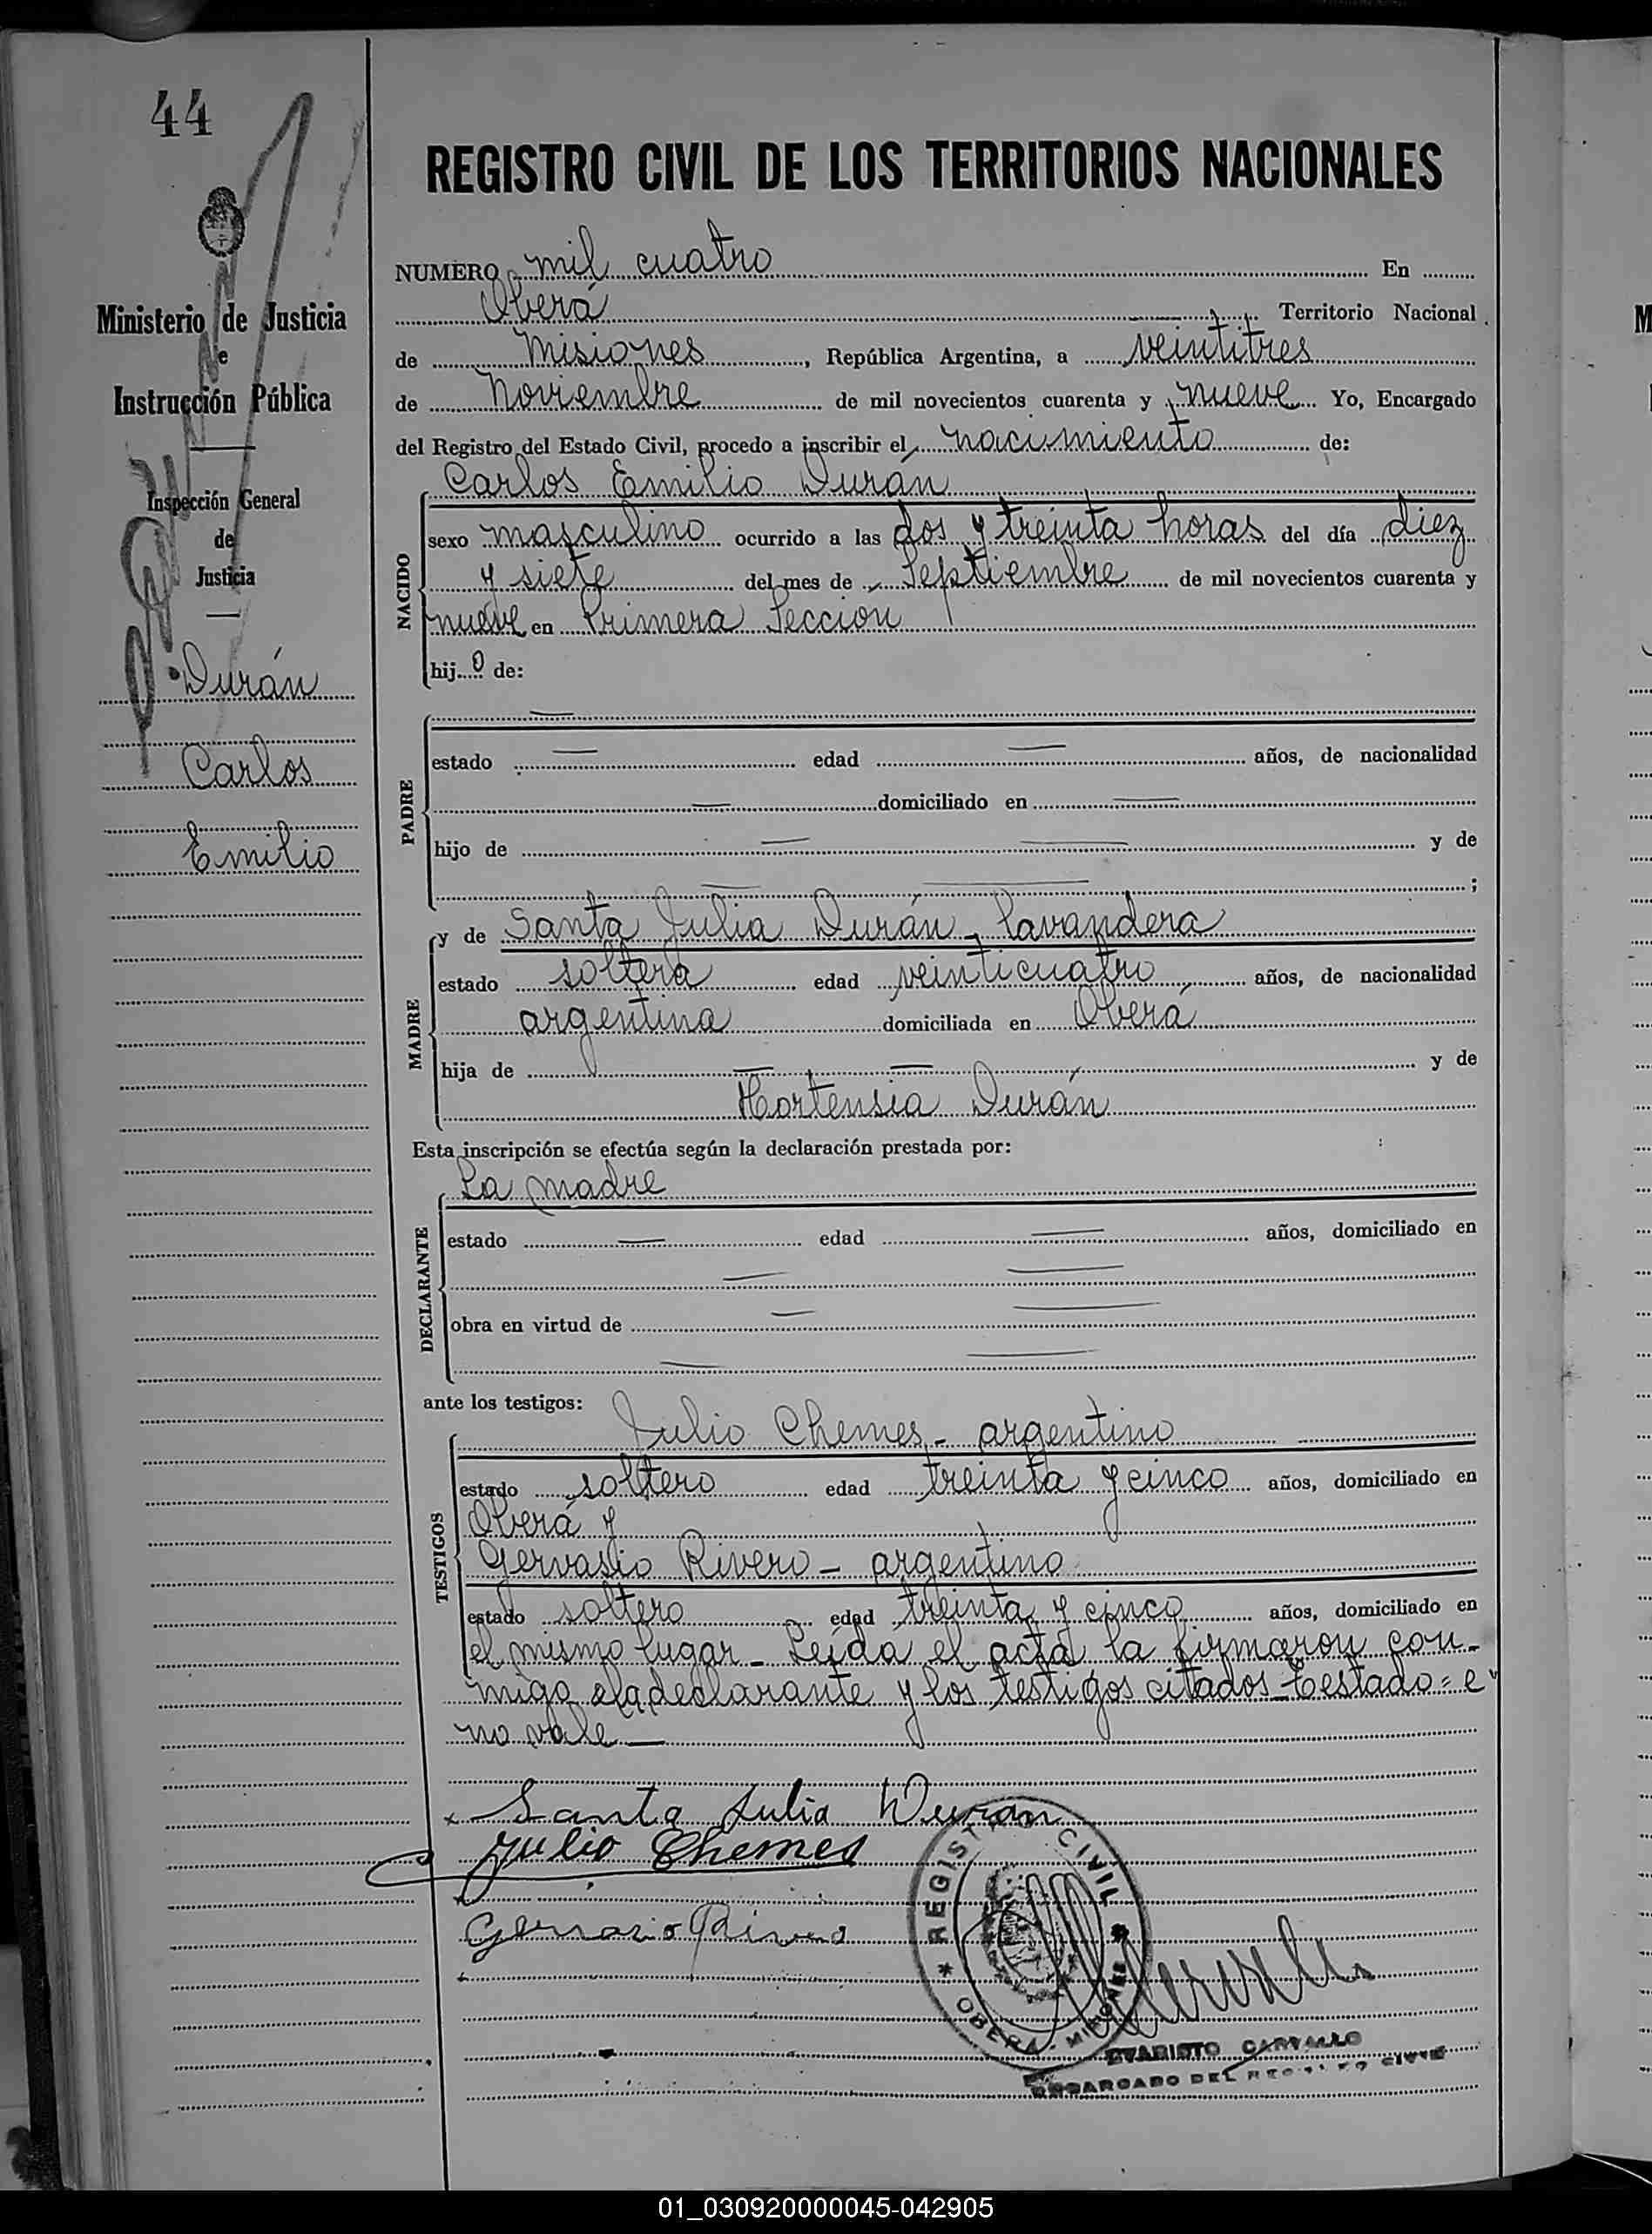 44
REGISTRO CIVIL DE LOS TERRITORIOS NACIONALES
Ministerio de Justicia
e
Instrucción Pública
Inspección General
de
Justicia
Durán
Carlos
Emilio
NUMERO mil cuatro En
Oberá Territorio Nacional
de Misiones, República Argentina, a veintitres
de Noviembre de mil novecientos cuarenta y nueve Yo, Encargado
del Registro del Estado Civil, procedo a inscribir el nacimiento de:
Carlos Emilio Durán
NACIDO
sexo masculino ocurrido a las dos y treinta horas del día diez
y siete del mes de Septiembre de mil novecientos cuarenta y
nueve en Primera Sección
hijo de:
PADRE
estado — edad — años, de nacionalidad
— domiciliado en —
hijo de — y de
— ;
MADRE
y de Santa Julia Durán, lavandera
estado soltera edad veinticuatro años, de nacionalidad
argentina domiciliada en Oberá
hija de — — y de
Hortensia Durán
Esta inscripción se efectúa según la declaración prestada por:
La madre
DECLARANTE
estado — edad — años, domiciliado en
— —
obra en virtud de — —
— —
ante los testigos:
Julio Chemes - argentino
TESTIGOS
estado soltero edad treinta y cinco años, domiciliado en
Oberá y
Gervasio Rivero - argentino
estado soltero edad treinta y cinco años, domiciliado en
el mismo lugar - Leída el acta la firmaron con-
migo la declarante y los testigos citados - Testado = e"
no vale —
Santa Julia Duran
Julio Chemes
Gervasio Rivero
REGISTRO CIVIL
OBERA - MISIONES
EVARISTO CARVALLO
ENCARGADO DEL REGISTRO CIVIL
01_030920000045-042905